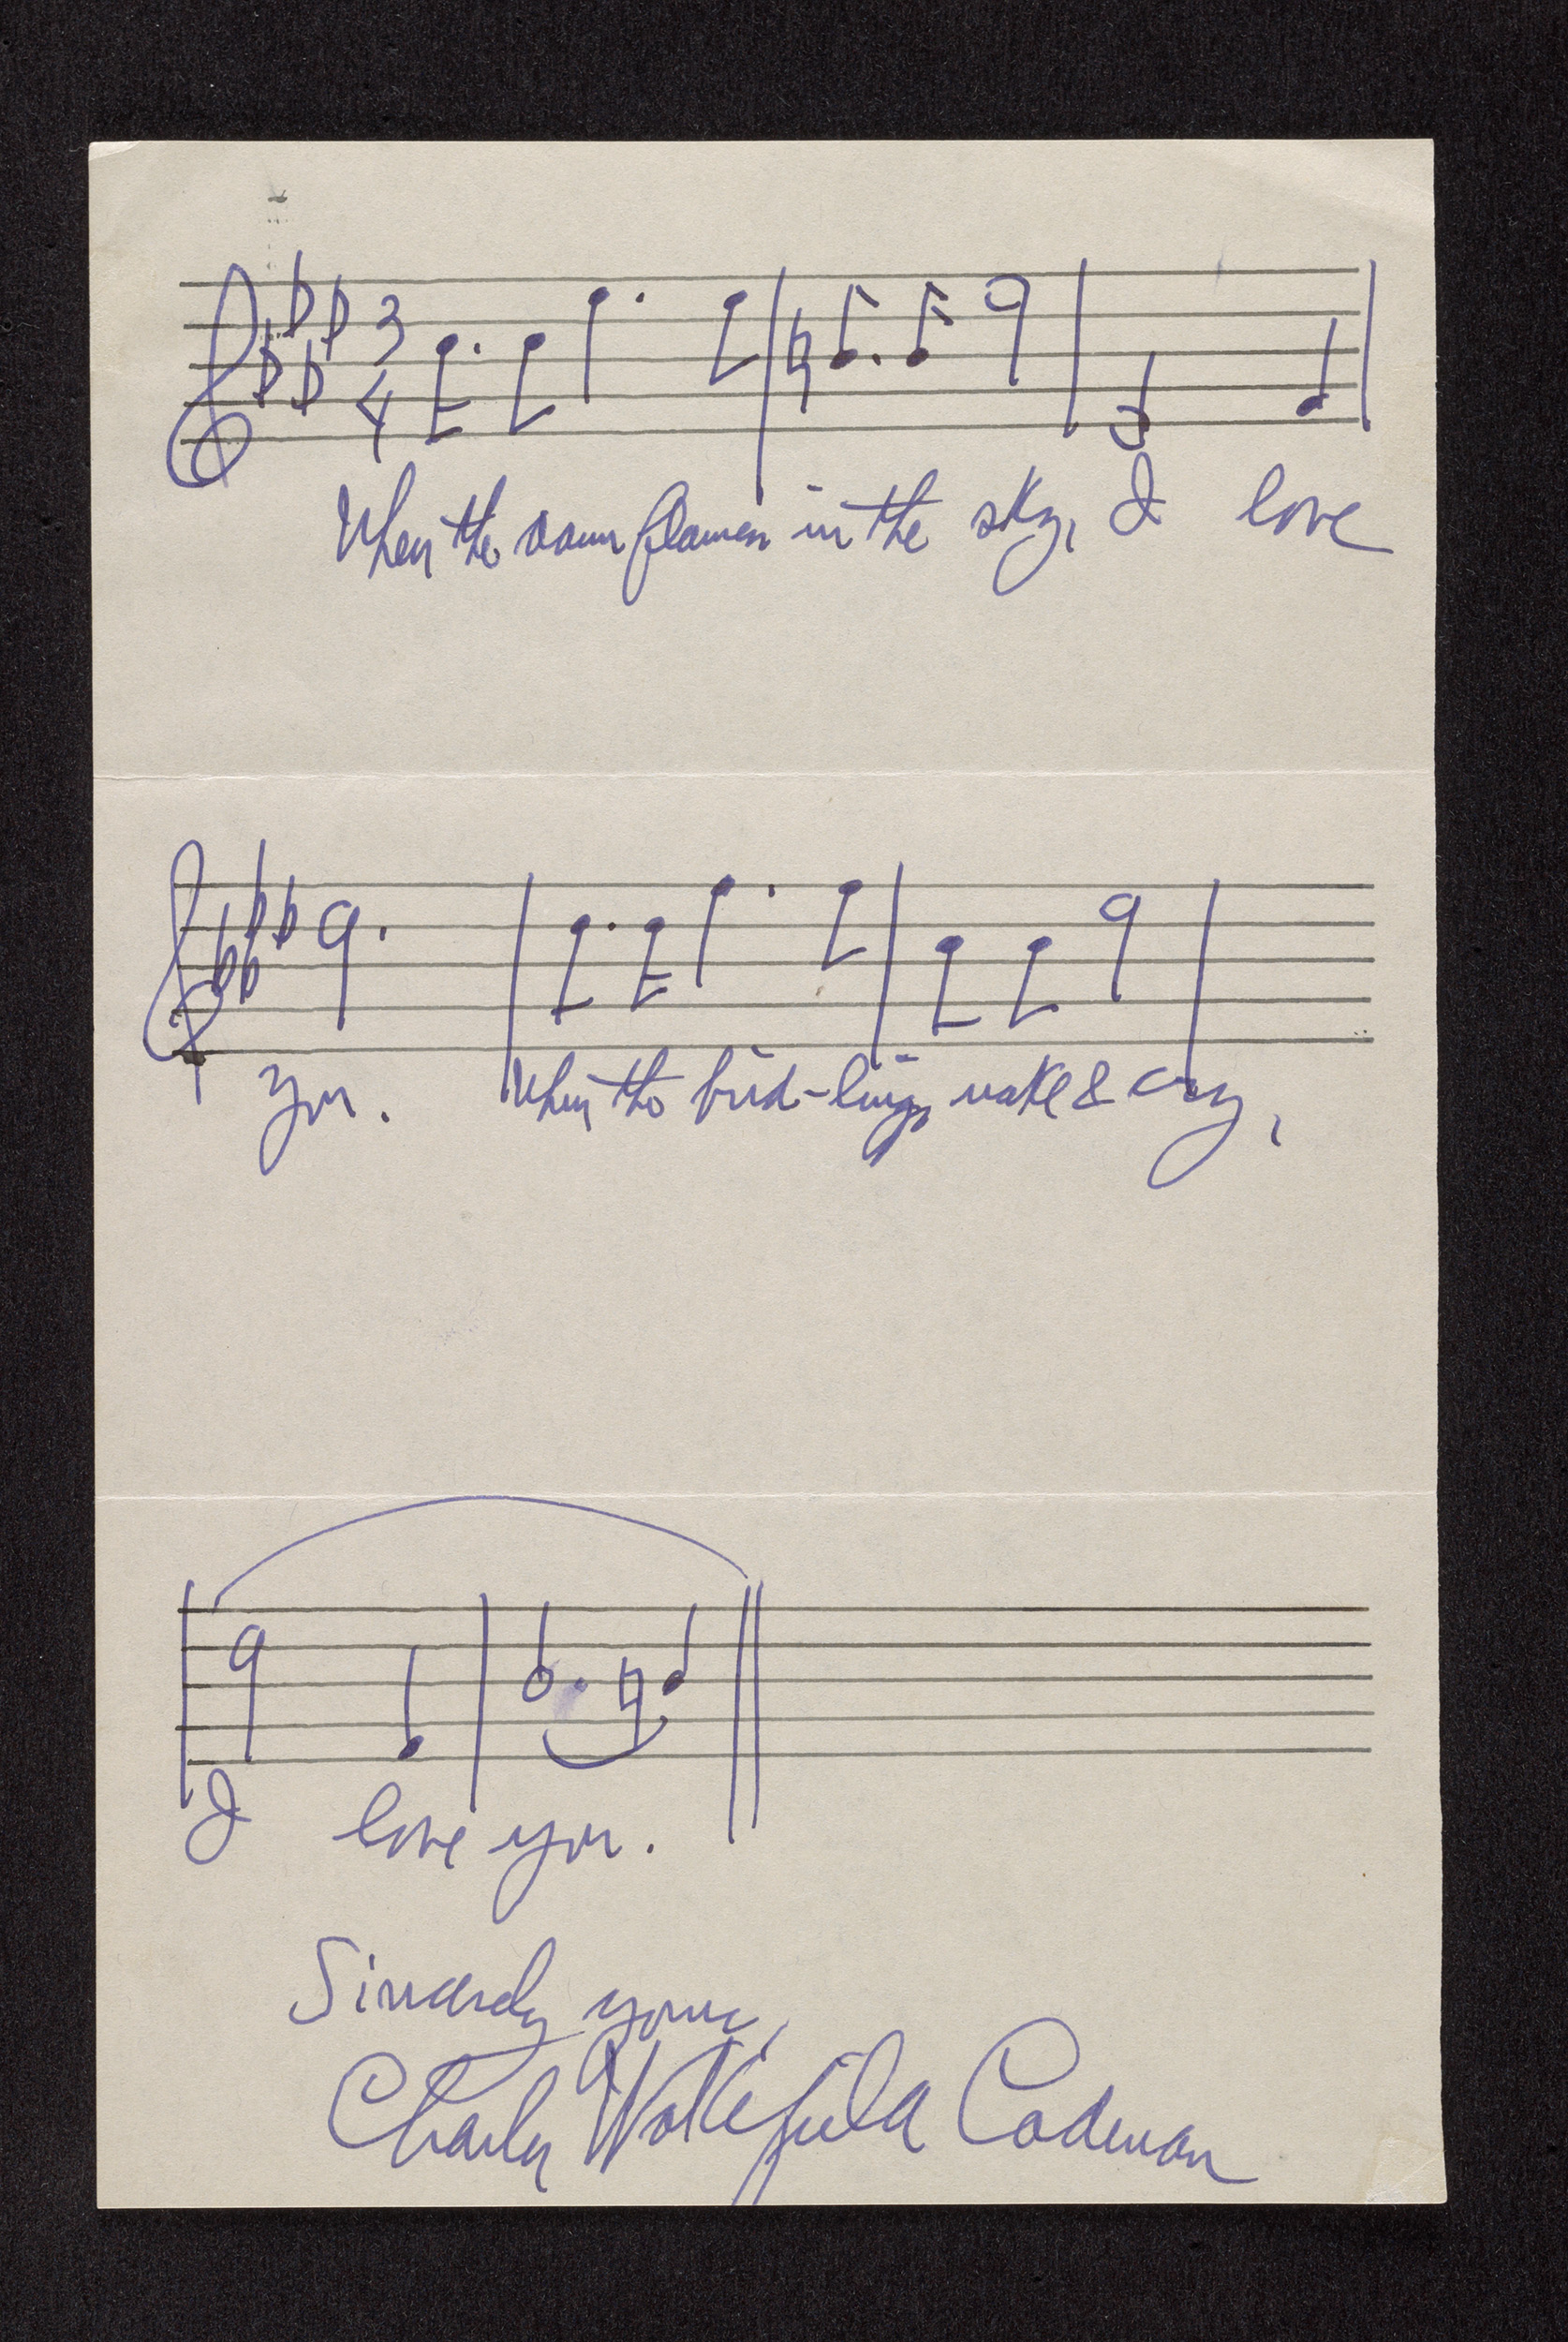 3
4
When the dawn flames in the sky, I love
you. When the bird-lings wake & cry,
I love you.
Sincerely yours,
Charles Wakefield Cadman